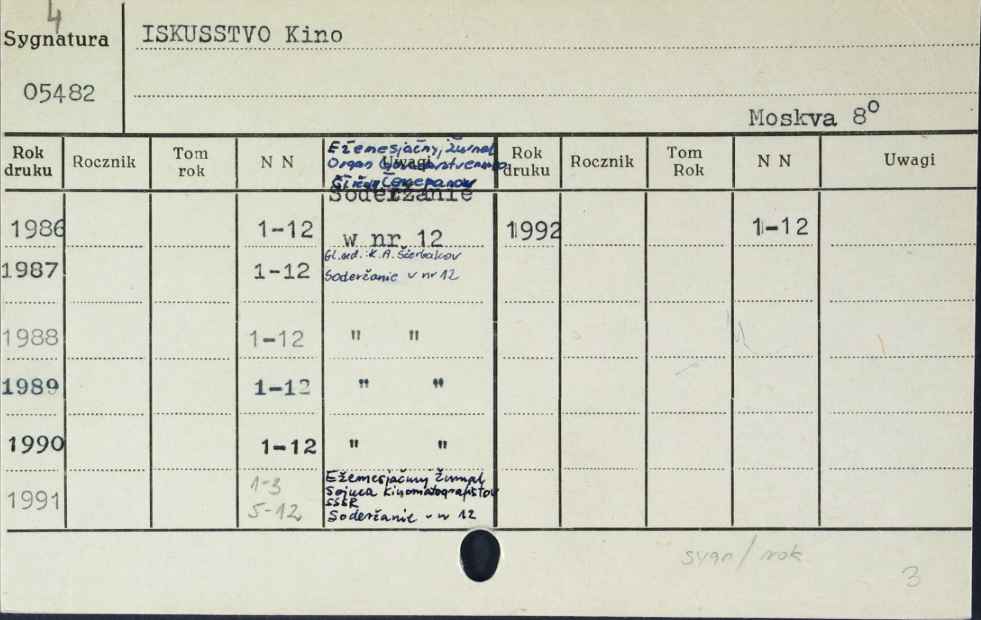 4
Sygnatura
ISKUSSTVO Kino
05482
Moskva 8º
Rok druku Rocznik Tom rok N N Uwagi Rok druku Rocznik Tom Rok N N Uwagi
Ežemesjačny, žurnal
Organ
Soderžanie
1986 1-12 w nr 12 1992 1-12
Gl.red.: K.A. Ščerbakov
1987 1-12 Soderžanie v nr 12
1988 1-12 " "
1989 1-12 " "
1990 1-12 " "
Ežemesjačnyj Žurnal
1-3 Sojuza kinomatografistov
1991 SSSR
5-12 Soderžanie v nr 12
sygn/rok
3